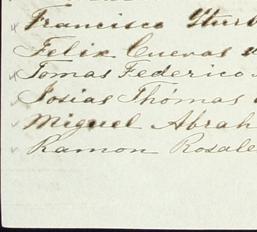 Francisco Yturb
Felix Cuevas
Tomas Federico
Josias Thomas
Miguel Abrah
Ramon Rosale